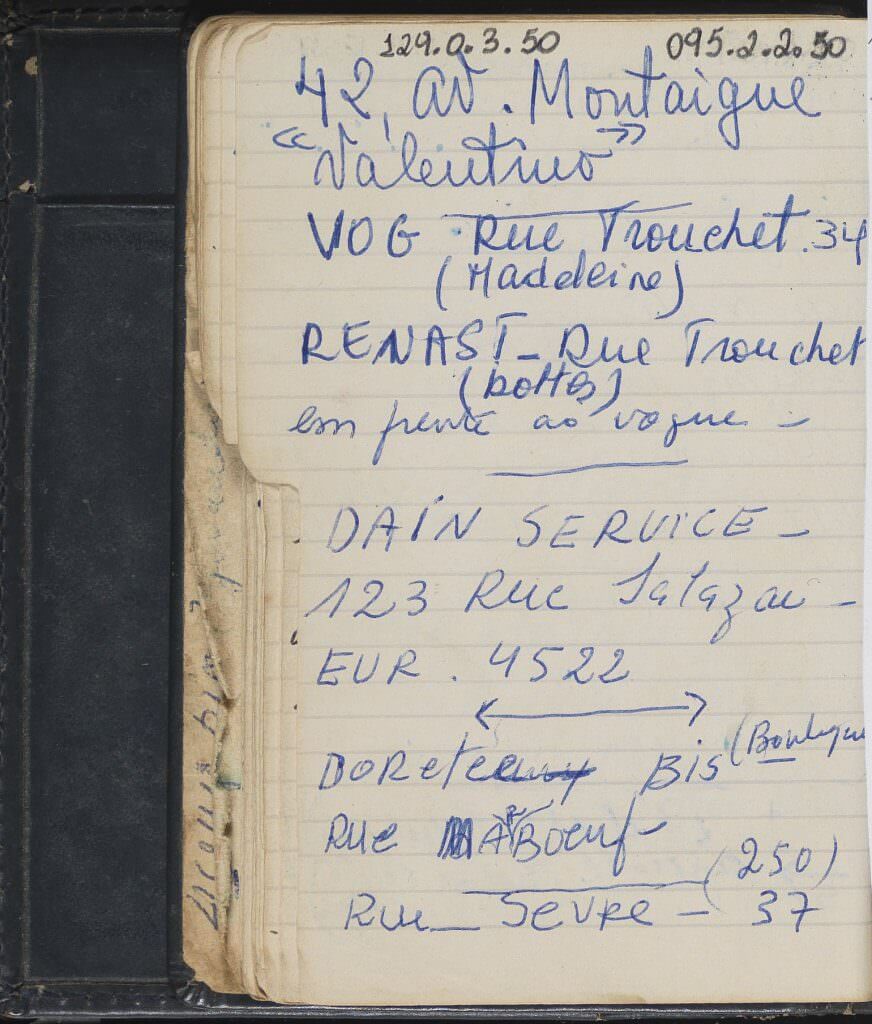 129.0.3.50 095.2.2.50
42, av. Montaigue
« Valentino »
VOG Rue Trouchet. 34
(Madeleine)
RENAST - Rue Trouchet
(bottes)
em frente ao vogue -
DAIN SERVICE -
123 Rue Salazar -
EUR. 4522
DORET Bis (Boutique
Rue MARBoeuf -
(250)
Rue Sevre - 37